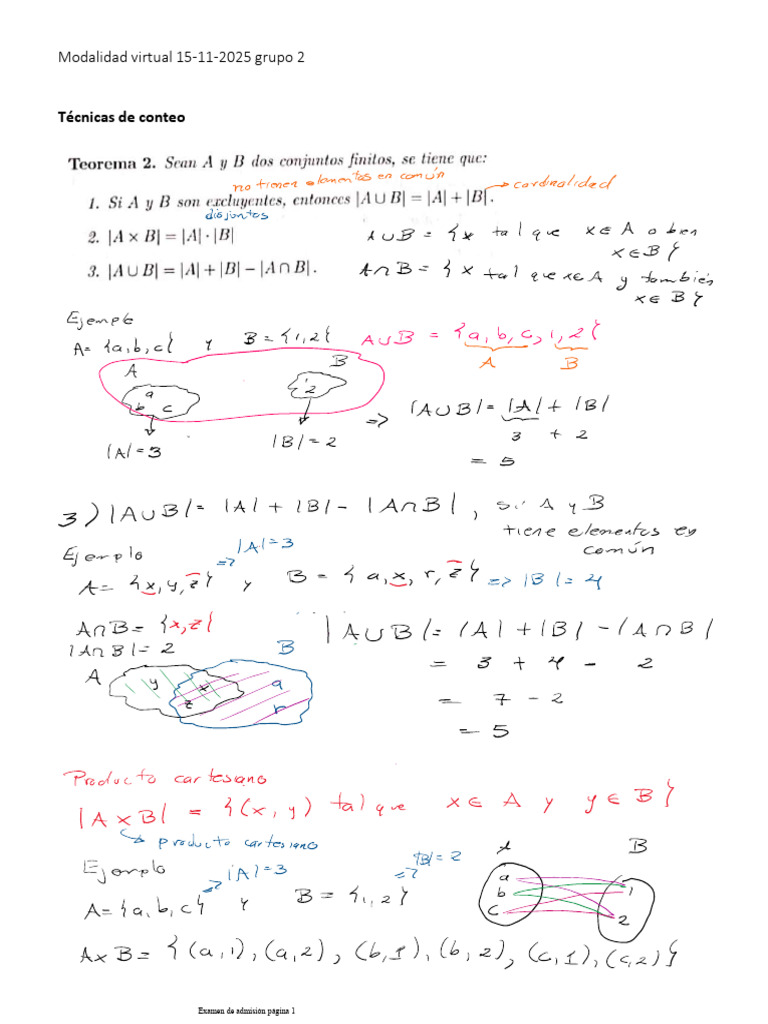 Modalidad virtual 15-11-2025 grupo 2
Técnicas de conteo
Teorema 2. Sean A y B dos conjuntos finitos, se tiene que:
no tienen elementos en común
cardinalidad
1. Si A y B son excluyentes, entonces |A ∪ B| = |A| + |B|.
disjuntos
2. |A × B| = |A| · |B|
A∪B = {x tal que x∈A o bien
x∈B}
3. |A ∪ B| = |A| + |B| − |A ∩ B|.
A∩B = {x tal que x∈A y también
x∈B}
Ejemplo
A= {a,b,c} y B = {1,2} A∪B = {a,b,c,1,2}
A B
A B
a
b c
1
2
|A|=3
|B|=2
=> |A∪B| = |A| + |B|
3 + 2
= 5
3) |A∪B| = |A| + |B| - |A∩B|, si A y B
tiene elementos en
común
Ejemplo
=> |A|=3
A= {x,y,z} y B = {a,x,r,z} => |B|=4
A∩B= {x,z}
|A∩B|=2
|A∪B| = |A| + |B| - |A∩B|
= 3 + 4 - 2
= 7 - 2
= 5
A B
y x a
z r
Producto cartesiano
|A×B| = {(x,y) tal que x∈A y y∈B}
producto cartesiano
Ejemplo
=> |A|=3
=> |B|=2
A={a,b,c} y B = {1,2}
A B
a
b 1
c 2
A×B = {(a,1),(a,2),(b,1),(b,2),(c,1),(c,2)}
Examen de admisión página 1